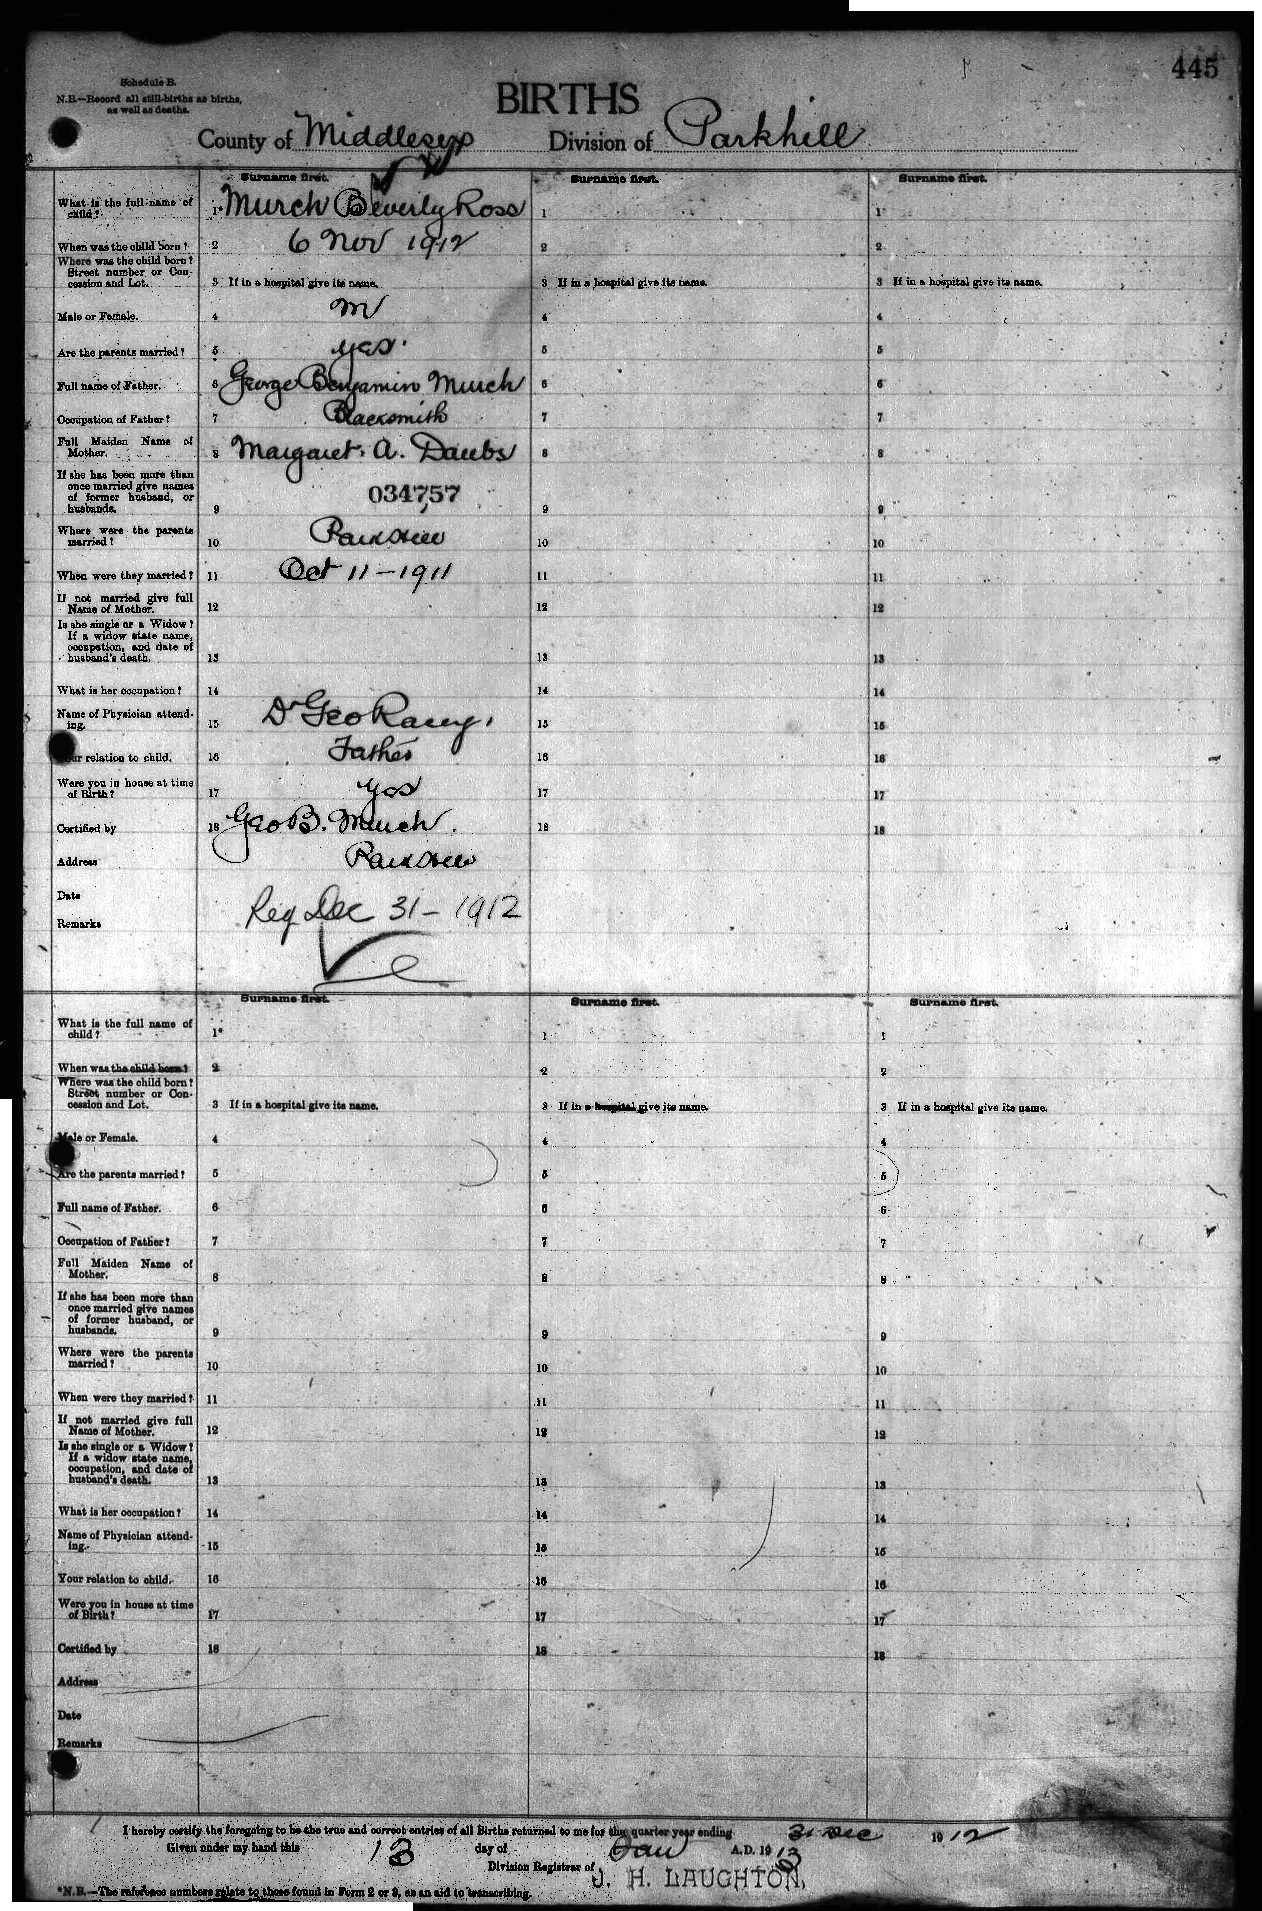 445
Schedule B.
N.B.—Record all still-births as births,
as well as deaths.
BIRTHS
County of Middlesex Division of Parkhill
Surname first. Surname first. Surname first.
What is the full name of child? 1* Murch Beverly Ross 1 1
When was the child born? 2 6 Nov 1912 2 2
Where was the child born?
Street number or Con-
cession and Lot. 3 If in a hospital give its name. 3 If in a hospital give its name. 3 If in a hospital give its name.
Male or Female. 4 M 4 4
Are the parents married? 5 yes 5 5
Full name of Father. 6 George Benjamin Murch 6 6
Occupation of Father? 7 Blacksmith 7 7
Full Maiden Name of
Mother. 8 Margaret. A. Daubs 8 8
If she has been more than
once married give names
of former husband, or
husbands. 9 034757 9 9
Where were the parents
married? 10 Parkhill 10 10
When were they married? 11 Oct 11 - 1911 11 11
If not married give full
Name of Mother. 12 12 12
Is she single or a Widow?
If a widow state name,
occupation, and date of
husband's death. 13 13 13
What is her occupation? 14 14 14
Name of Physician attend-
ing. 15 Dr Geo Racey. 15 15
Your relation to child. 16 Father 16 16
Were you in house at time
of Birth? 17 yes 17 17
Certified by 18 Geo B. Murch. 18 18
Address Parkhill
Date
Remarks Reg Dec 31 - 1912
Surname first. Surname first. Surname first.
What is the full name of
child? 1* 1 1
When was the child born? 2 2 2
Where was the child born?
Street number or Con-
cession and Lot. 3 If in a hospital give its name. 3 If in a hospital give its name. 3 If in a hospital give its name.
Male or Female. 4 4 4
Are the parents married? 5 5 5
Full name of Father. 6 6 6
Occupation of Father? 7 7 7
Full Maiden Name of
Mother. 8 8 8
If she has been more than
once married give names
of former husband, or
husbands. 9 9 9
Where were the parents
married? 10 10 10
When were they married? 11 11 11
If not married give full
Name of Mother. 12 12 12
Is she single or a Widow?
If a widow state name,
occupation, and date of
husband's death. 13 13 13
What is her occupation? 14 14 14
Name of Physician attend-
ing. 15 15 15
Your relation to child. 16 16 16
Were you in house at time
of Birth? 17 17 17
Certified by 18 18 18
Address
Date
Remarks
I hereby certify the foregoing to be the true and correct entries of all Births returned to me for the quarter year ending 31 Dec 1912
Given under my hand this 13 day of Jan A.D. 1913
Division Registrar of J. H. LAUGHTON,
*N.B.—The reference numbers relate to those found in Form 2 or 3, as an aid to transcribing.